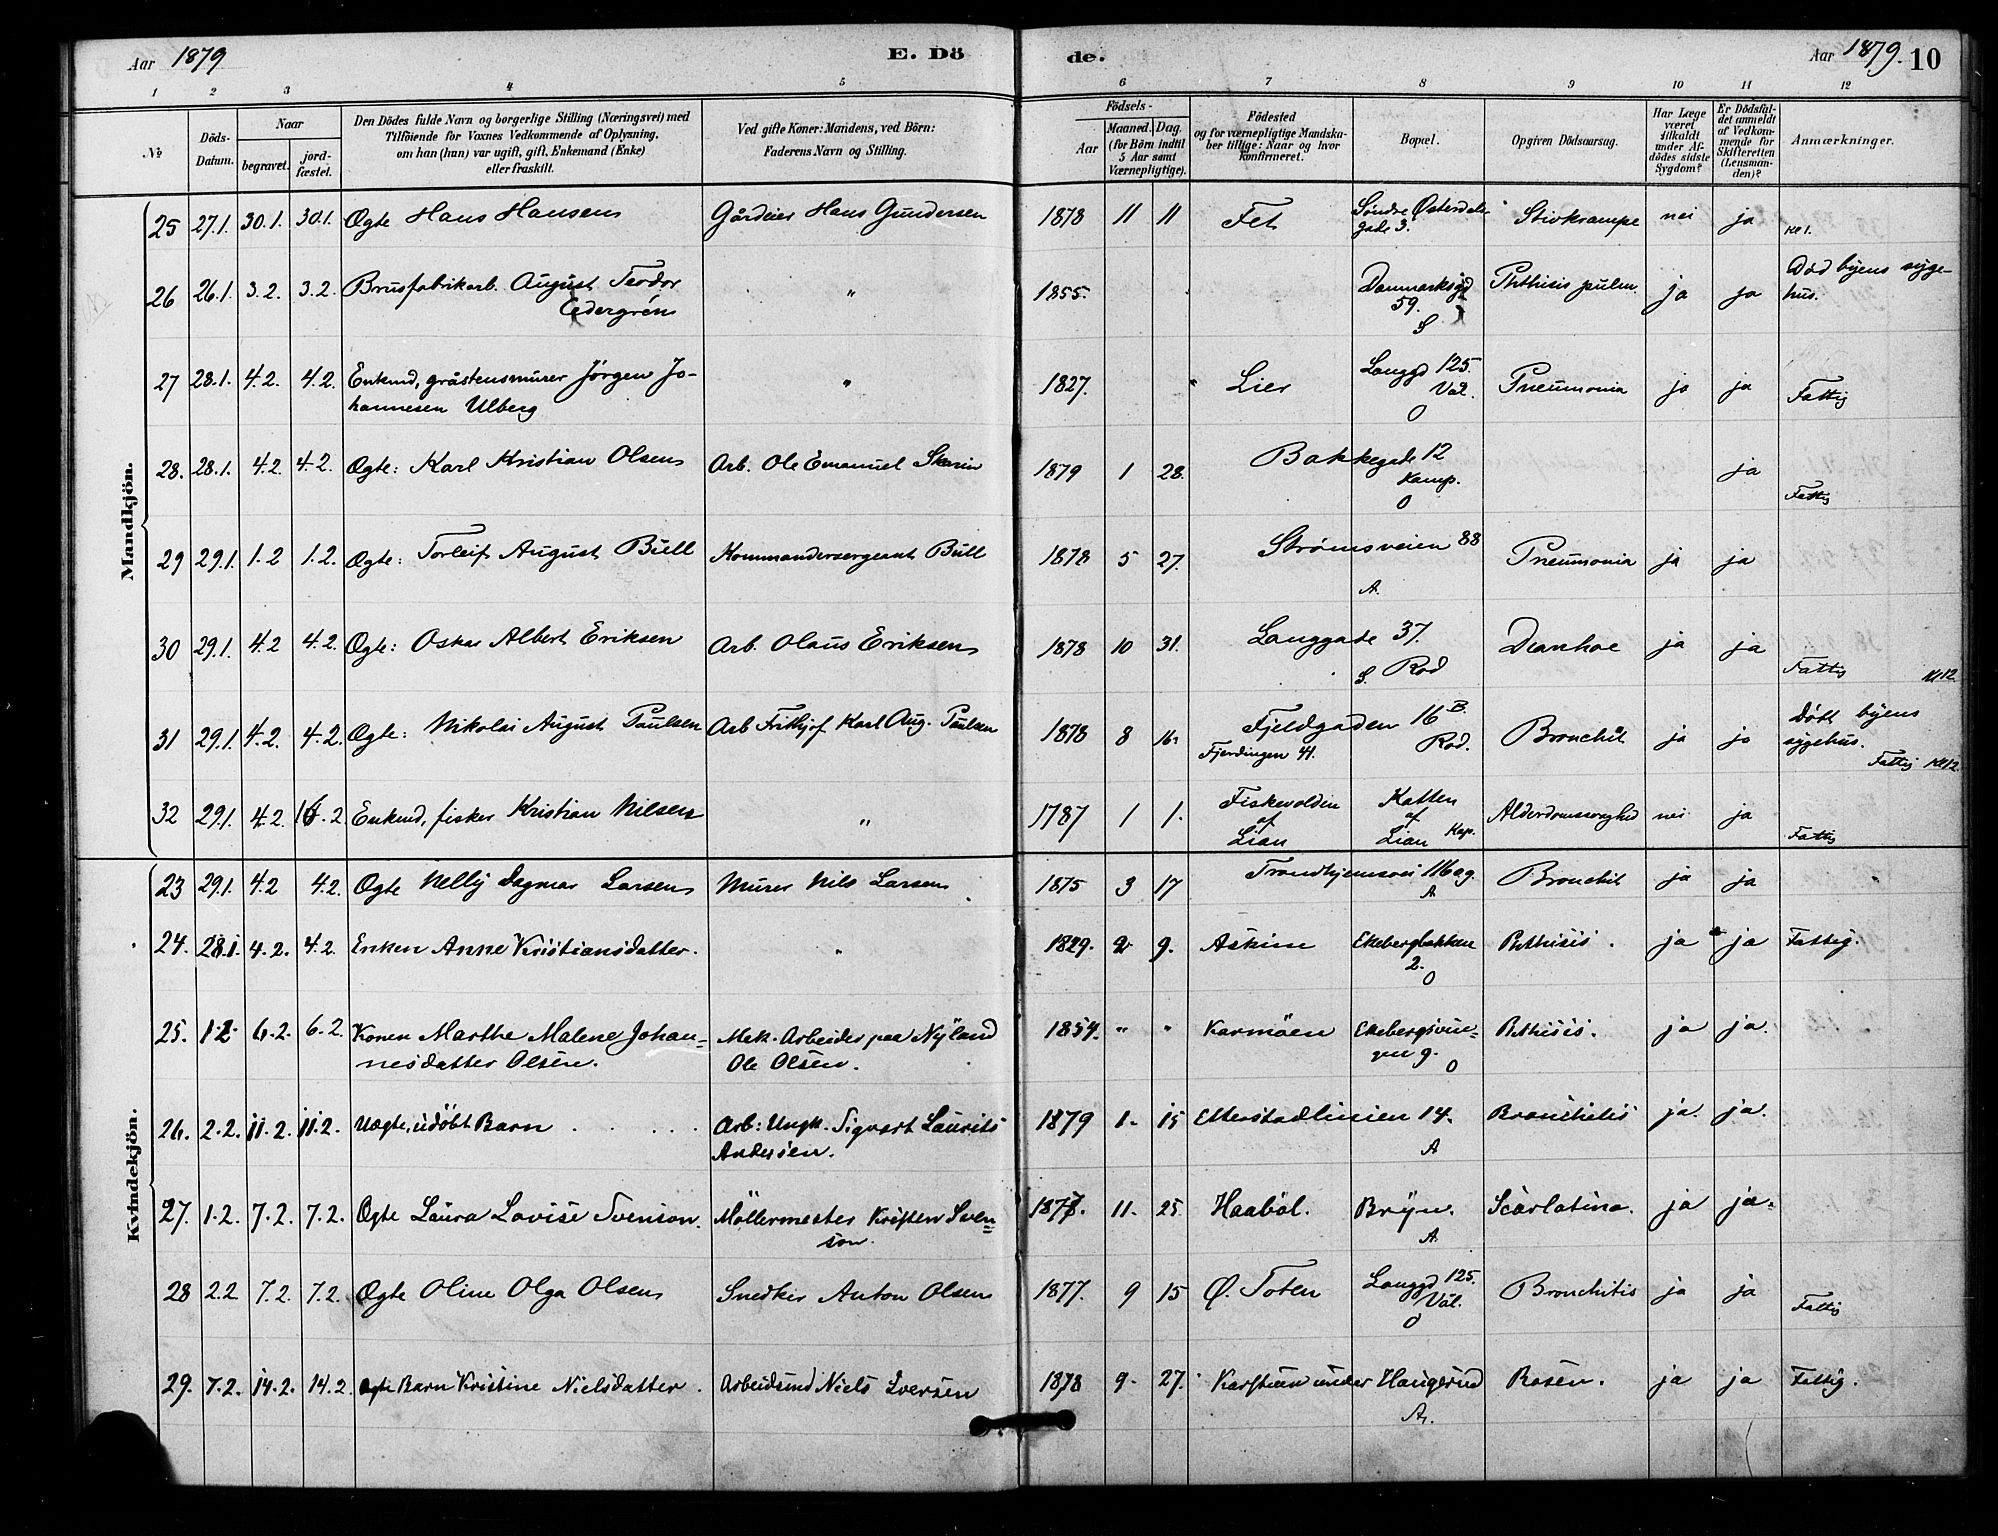 Aar 1879 E. Dö de. Aar 1879. 10
1 2 3 4 5 6 7 8 9 10 11 12
№ Döds-Datum. Naar begravet. jordfæstet. Den Dödes fulde Navn og borgerlige Stilling (Næringsvei) med Tilföiende for Voxnes Vedkommende af Oplysning, om han (hun) var ugift, gift, Enkemand (Enke) eller fraskilt. Ved gifte Koner: Mandens, ved Börn: Faderens Navn og Stilling. Födsels- Aar Maaned. Dag. (for Börn indtil 5 Aar samt Værnepligtige). Födested og for værnepligtige Mandskaber tillige: Naar og hvor konfirmeret. Bopæl. Opgiven Dödsaarsag. Har Læge været tilkaldt under Afdödes sidste Sygdom? Er Dödsfaldet anmeldt af Vedkommende for Skifteretten (Lensmanden)? Anmærkninger.
Mandkjön.
25 27.1. 30.1. 30.1. Ægte Hans Hansen Gårdeier Hans Gundersen 1878 11 11 Fet Søndre Østerdals gade 3. Stivkrampe nei ja Kl 1.
26 26.1. 3.2. 3.2. Brusfabrikarb. August Teodor " 1855. Danmarksgd Phthisis pulm. ja ja Død byens syge-
Cedergrén 59. S hus.
27 28.1. 4.2. 4.2. Enkmd, gråstensmurer Jørgen Jo- " 1827. Lier Langgd 125. Pneumonia ja ja Fattig
hannesen Ulberg Val. O
28. 28.1. 4.2. 4.2. Ægte: Karl Kristian Olsen Arb. Ole Emanuel 1879 1 28. Bakkegade 12 ja Fattig
Kamp. O
29 29.1. 1.2 1.2. Ægte: Torleif August Bull Kommandersergeant Bull 1878 5 27. Strømsveien 88 Pneumonia ja ja
A.
30 29.1. 4.2 4.2. Ægte: Oskar Albert Eriksen Arb. Olaus Eriksen 1878 10 31. Langgade 37. Diarrhoe ja ja Fattig Kl 12
S. Rod
31 29.1. 4.2. 4.2. Ægte: Nikolai August Paulsen Arb Frithjof Karl Aug. Paulsen 1878 8 16. Fjeldgaden 16 B. Bronchit ja ja Dødt byens
Fjerdingen 41. Rod. sygehus.
Fattig Kl 12
32 29.1. 4.2. .2 Enkmd, fisker Kristian Nilsen " 1787 1 1. Fiskevolden Katten Alderdomssvaghed nei ja Fattig
af af
Lian Lian Kap.
Kvindekjön.
23 29.1. 4.2 4.2. Ægte Nelly Dagmar Larsen Murer Nils Larsen 1875 3 17 Trondhjemsvei 116 ag. Bronchit ja ja
A
24. 28.1. 4.2. 4.2. Enken Anne Kristiansdatter. " 1829. 2 9. Askim Ekebergbakken Phthisis. ja ja Fattig.
2. O
25. 1.2. 6.2. 6.2. Konen Marthe Malene Johan- Mek. Arbeider paa Nyland 1854. " " Karmöen Ekebergsvin- Phthisis. ja ja.
nesdatter Olsen. Ole Olsen. gen 9. O
26. 2.2. 11.2. 11.2. Uægte, udöbt Barn Arb: Ungk. Sigvart Laurits 1879 1. 15 Etterstadlinien 14. Bronchitis ja. ja.
Andersen. A
27. 1.2. 7.2. 7.2. Ægte Laura Lovise Svenson. Möllermester Kristen Sven- 1877. 11. 25. Haaböl. Bryn. Scarlatina. ja ja.
son. A.
28 2.2 7.2. 7.2. Ægte Oline Olga Olsen Snedker Anton Olsen 1877. 9 15 Ø. Toten Langgd 125. Bronchitis ja ja Fattig
Val. O
29. 7.2. 14.2. 14.2 Ægte Barn Kristine Nielsdatter. Arbeidsmd Niels Iversen 1878 9. 27. under Haugerud Rosen. ja ja Fattig.
A.